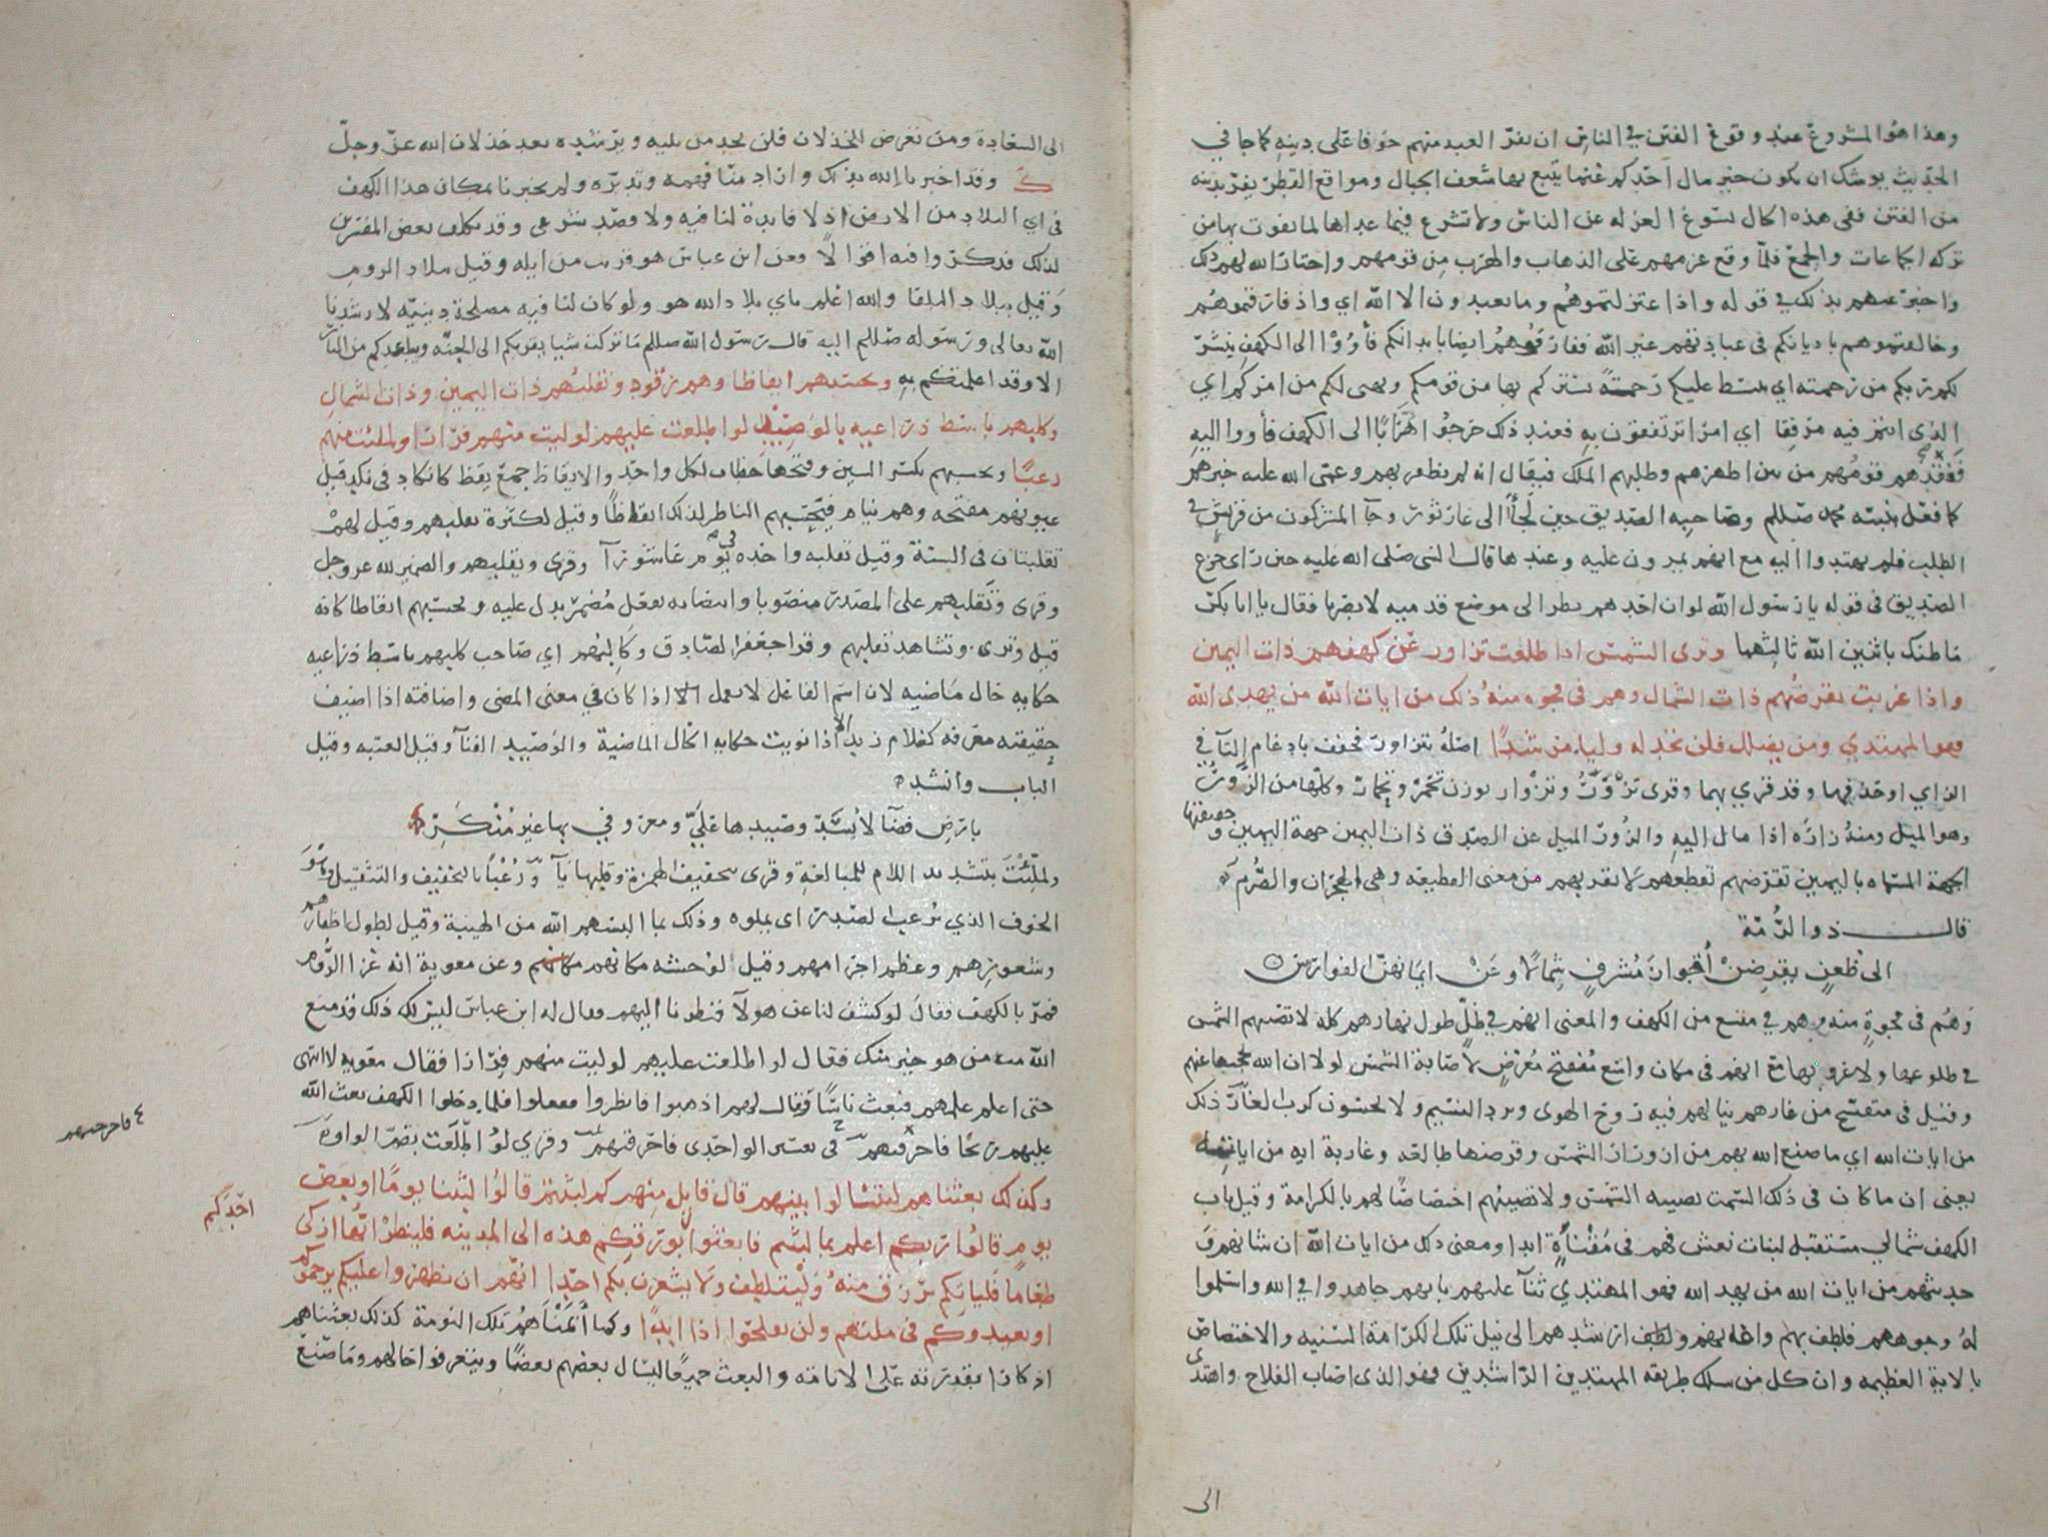 وهذا هو المشروع عند وقوع الفتن في الناس ان يفر العبد منهم خوفا على دينه كما جا في
الحديث يوشك ان يكون خير مال احدكم غنما يتبع بها شعف الجبال ومواقع القطر يفر بدينه
من الفتن ففى هذه الحال تسوغ العزله عن الناس ولا تشرع فيما عداها لما يفوت بها من
تركه الجماعات والجمع فلما وقع عزمهم على الذهاب والهرب من قومهم واختار الله لهم ذلك
واخبر عنهم بذلك في قوله واذا اعتزلتموهم وما يعبدون الا الله اي واذ فارقتموهم
وخالفتموهم باديانكم في عبادتهم غير الله ففارقوهم ايضا بابدانكم فأووا الى الكهف ينشر
لكم ربكم من رحمته اي يبسط عليكم رحمتة يستركم بها من قومكم ويهيى لكم من امركم اي
الذى انتم فيه مرفقا اي امرا ترتفقون به فعند ذلك خرجوا هرابا الى الكهف فأووا اليه
ففقدهم قومهم من بين اظهرهم وطلبهم الملك فيقال انه لم يظفر بهم وعمى الله عليه خبرهم
كما فعل بنبيه محمد صللم وصاحبه الصديق حين لجأا الى غار ثور وجآ المشركون من قريش في
الطلب فلم يهتدوا اليه مع انهم يمرون عليه وعندها قال النبى صلى الله عليه حين راى جزع
الصديق في قوله يا رسول الله لو ان احدهم نظر الى موضع قدميه لابصرنا فقال يا ابا بكر
ما ظنك باثنين الله ثالثهما وترى الشمس اذا طلعت تزاور عن كهفهم ذات اليمين
واذا غربت تقرضهم ذات الشمال وهم فى فجوة منه ذلك من ايات الله من يهدى الله
فهو المهتدي ومن يضلل فلن تجد له وليا مرشدا اصله تتزاور فخفف بادغام التآ في
الزاي او حذفها وقد قري بهما وقرى تزورّ وتزوار بوزن تحمر وتحمار وكلها من الزور
وهو الميل ومنه زاره اذا مال اليه والزور الميل عن الصدق ذات اليمين جهة اليمين وحقيقتها
الجهة المسماه باليمين تقرضهم تقطعهم لا تقربهم من معنى القطيعه وهي الهجران والصرم
قال ذو الرمة
الى ظعن يقرضن أقواز مشرف شمالا وعن ايمانهن الفوارس
وهم فى فجوة منه وهم في متسع من الكهف والمعنى انهم في ظل طول نهارهم كله لا تصيبهم الشمس
في طلوعها ولا غروبها مع انهم فى مكان واسع مفتح معرض لاصابة الشمس لولا ان الله يحجبها عنهم
وقيل فى متفسح من غارهم ينالهم فيه روح الهوى وبرد النسيم ولا يحسون كرب الغار ذلك
من ايات الله اي ما صنع الله بهم من ازورار الشمس وقرضها طالعه وغاربة ايه من اياته
يعنى ان ما كان فى ذلك السمت تصيبه الشمس ولا تصيبهم اختصاصا لهم بالكرامة وقيل باب
الكهف شمالي مستقبل لبنات نعش فهم فى مقنأة ابدا ومعنى ذلك من ايات الله ان شانهم و
حديثهم من ايات الله من يهد الله فهو المهتدي ثنآ عليهم بانهم جاهدوا في الله واسلموا
له وجوههم فلطف بهم واعانهم ولطف ارشدهم الى نيل تلك الكرامة السنيه والاختصاص
بالاية العظيمه وان كل من سلك طريقه المهتدين الراشدين فهو الذى اصاب الفلاح واهتدى
الى
الى السعادة ومن تعرض للخذلان فلن يجد من يليه ويرشده بعد خذلان الله عز وجل
ك وقد اخبرنا الله بذلك واراد منا فهمه وتدبره ولم يخبرنا بمكان هذا الكهف
فى اي البلاد من الارض اذ لا فايدة لنا فيه ولا قصد شرعى وقد تكلف بعض المفسرين
لذلك فذكروا فيه اقوالا فعن ابن عباس هو قريب من ايله وقيل ببلاد الروم
وقيل ببلاد البلقا والله اعلم باي بلاد الله هو ولو كان لنا فيه مصلحة دينيه لارشدنا
الله تعالى ورسوله صللم اليه قال رسول الله صللم ما تركت شيا يقربكم الى الجنه ويباعدكم من النار
الا وقد اعلمتكم به وتحسبهم ايقاظا وهم رقود ونقلبهم ذات اليمين وذات الشمال
وكلبهم باسط ذراعيه بالوصيد لو اطلعت عليهم لوليت منهم فرارا ولملئت منهم
رعبا وتحسبهم بكسر السين وفتحها خطاب لكل واحد والايقاظ جمع يقظ كانكاد فى نكد قيل
عيونهم مفتحه وهم نيام فيحسبهم الناظر لذلك ايقاظا وقيل لكثرة تقلبهم وقيل لهم
تقلبتان فى السنة وقيل تقلبه واحده في يوم عاشورآ وقرى ويقلبهم والضمير لله عز وجل
وقرى وتقلبهم على المصدر منصوبا وانتصابه بفعل مضمر يدل عليه وتحسبهم ايقاظا كانه
قيل وترى وتشاهد تقلبهم وقرا جعفر الصادق وكالبهم اي صاحب كلبهم باسط ذراعيه
حكايه حال ماضيه لان اسم الفاعل لا يعمل الا اذا كان في معنى المضى واضافته اذا اضيف
حقيقته معرفه كغلام زيد الا اذا نويت حكايه الحال الماضية والوصيد الفنآ وقيل العتبه وقيل
الباب وانشد
بارض فضآ لا يسد وصيدها علي ومعروفي بها غير منكر
ولملئت بتشديد اللام للمبالغة وقرى بتخفيف الهمزة وقلبها يآ ورعبا بالتخفيف والتثقيل وهو
الخوف الذي يرعب الصدر اى يملوه وذلك بما البسهم الله من الهيبة وقيل لطول اظفارهم
وشعورهم وعظم اجرامهم وقيل لوحشه مكانهم وعن معوية انه غزا الروم
فمر بالكهف فقال لو كشف لنا عن هولآ فنظرنا اليهم فقال له ابن عباس ليس لك ذلك قد منع
الله منه من هو خير منك فقال لو اطلعت عليهم لوليت منهم فرارا فقال معويه لا انتهى
حتى اعلم علمهم فبعث ناسا وقال لهم اذهبوا فانظروا ففعلوا فلما دخلوا الكهف بعث الله
عليهم ريحا فاحرقتهم في تفسير الواحدى فاخرقتهم وقري لو اطلعت بضم الواو
ع فاخرجتهم
وكذلك بعثناهم ليتسالوا بينهم قال قايل منهم كم لبثتم قالوا لبثنا يوما او بعض
يوم قالوا ربكم اعلم بما لبثتم فابعثوا بورقكم هذه الى المدينه فلينظر ايها ازكى
احدكم
طعاما فلياتكم برزق منه وليتلطف ولا يشعرن بكم احدا انهم ان يظهروا عليكم يرجموكم
او يعيدوكم في ملتهم ولن تفلحوا اذا ابدا وكما أنمناهم تلك النومة كذلك بعثناهم
اذكارا بقدرته على الاماته والبعث جميعا ليسال بعضهم بعضا ويتعرفوا حالهم وما صنع